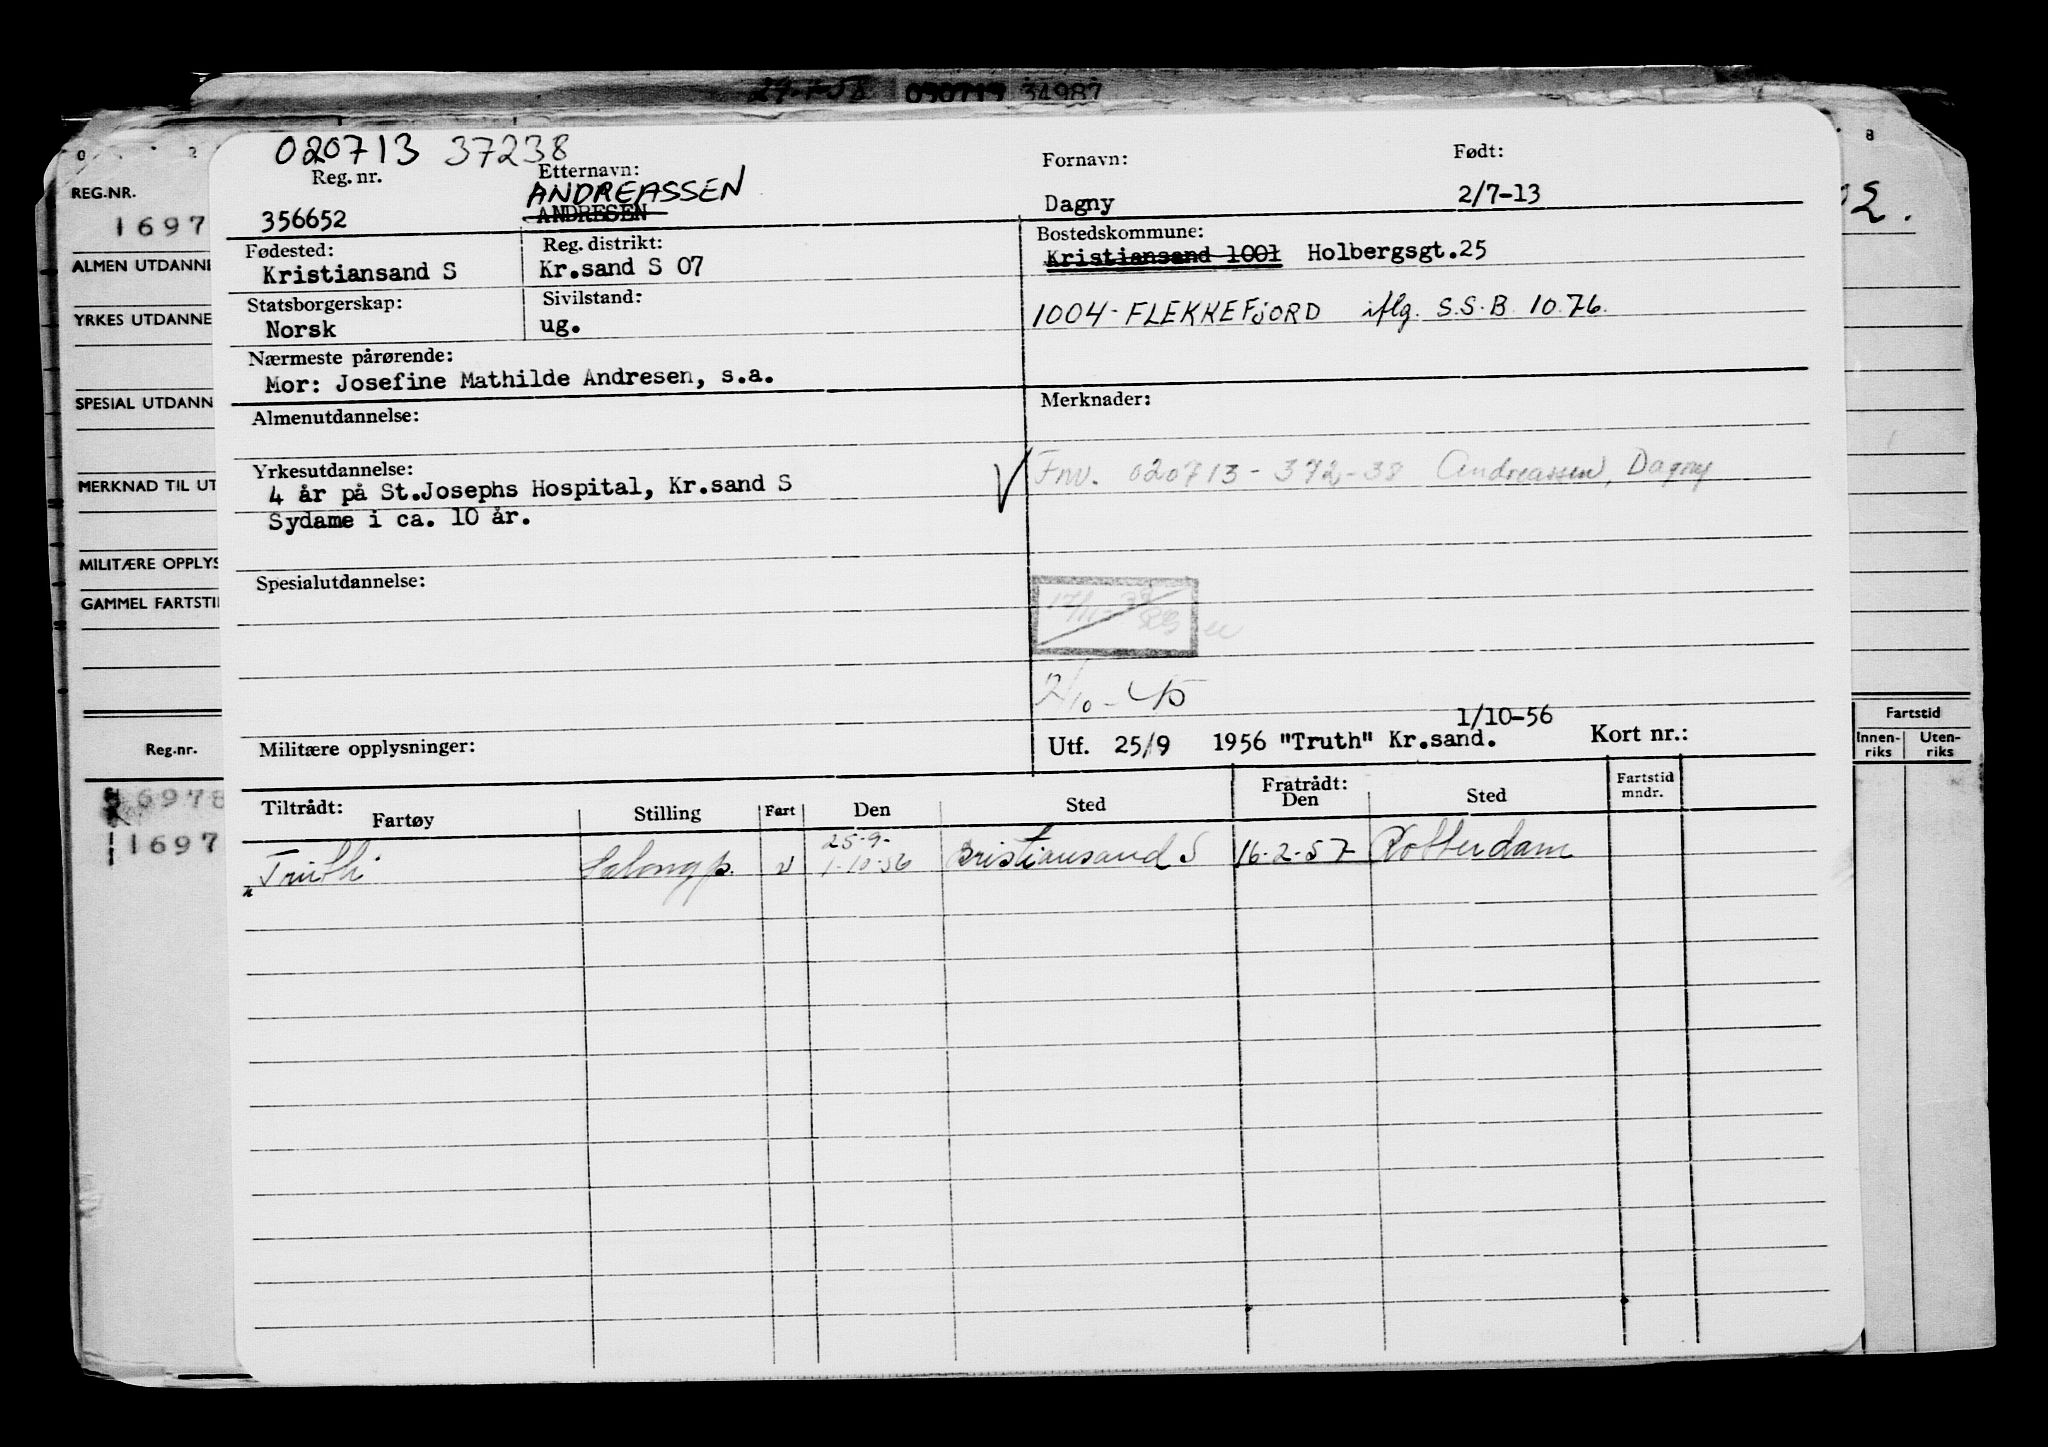 29-1-58 34987
020713 37238
Reg. nr. Etternavn: Fornavn: Født:
ANDREASSEN
356652 ANDRESEN Dagny 2/7-13
Fødested: Reg. distrikt: Bostedskommune:
Kristiansand S Kr.sand S 07 Kristiansand 1001 Holbergsgt.25
Statsborgerskap: Sivilstand:
Norsk ug. 1004-FLEKKEFJORD iflg. S.S.B. 10.76.
Nærmeste pårørende:
Mor: Josefine Mathilde Andresen, s.a.
Almenutdannelse: Merknader:
Yrkesutdannelse:
4 år på St.Josephs Hospital, Kr.sand S
Fnv. 020713-372-38 Andreassen, Dagny
Sydame i ca. 10 år.
Spesialutdannelse:
2/10-
1/10-56
Militære opplysninger: Utf. 25/9 1956 "Truth" Kr.sand. Kort nr.:
Tiltrådt: Fratrådt: Fartstid
Fartøy Stilling Fart Den Sted Den Sted mndr.
25-9-
"Truth Salongp. v 1-10-56 Kristiansand S 16-2-57 Rotterdam
0 2
REG.NR.
1697
ALMEN UTDANNE
YRKES UTDANNE
SPESIAL UTDANN
MERKNAD TIL UT
MILITÆRE OPPLYS
GAMMEL FARTSTI
Reg.-nr.
16978
1697
8
02.
Fartstid
Innen-riks Uten-riks